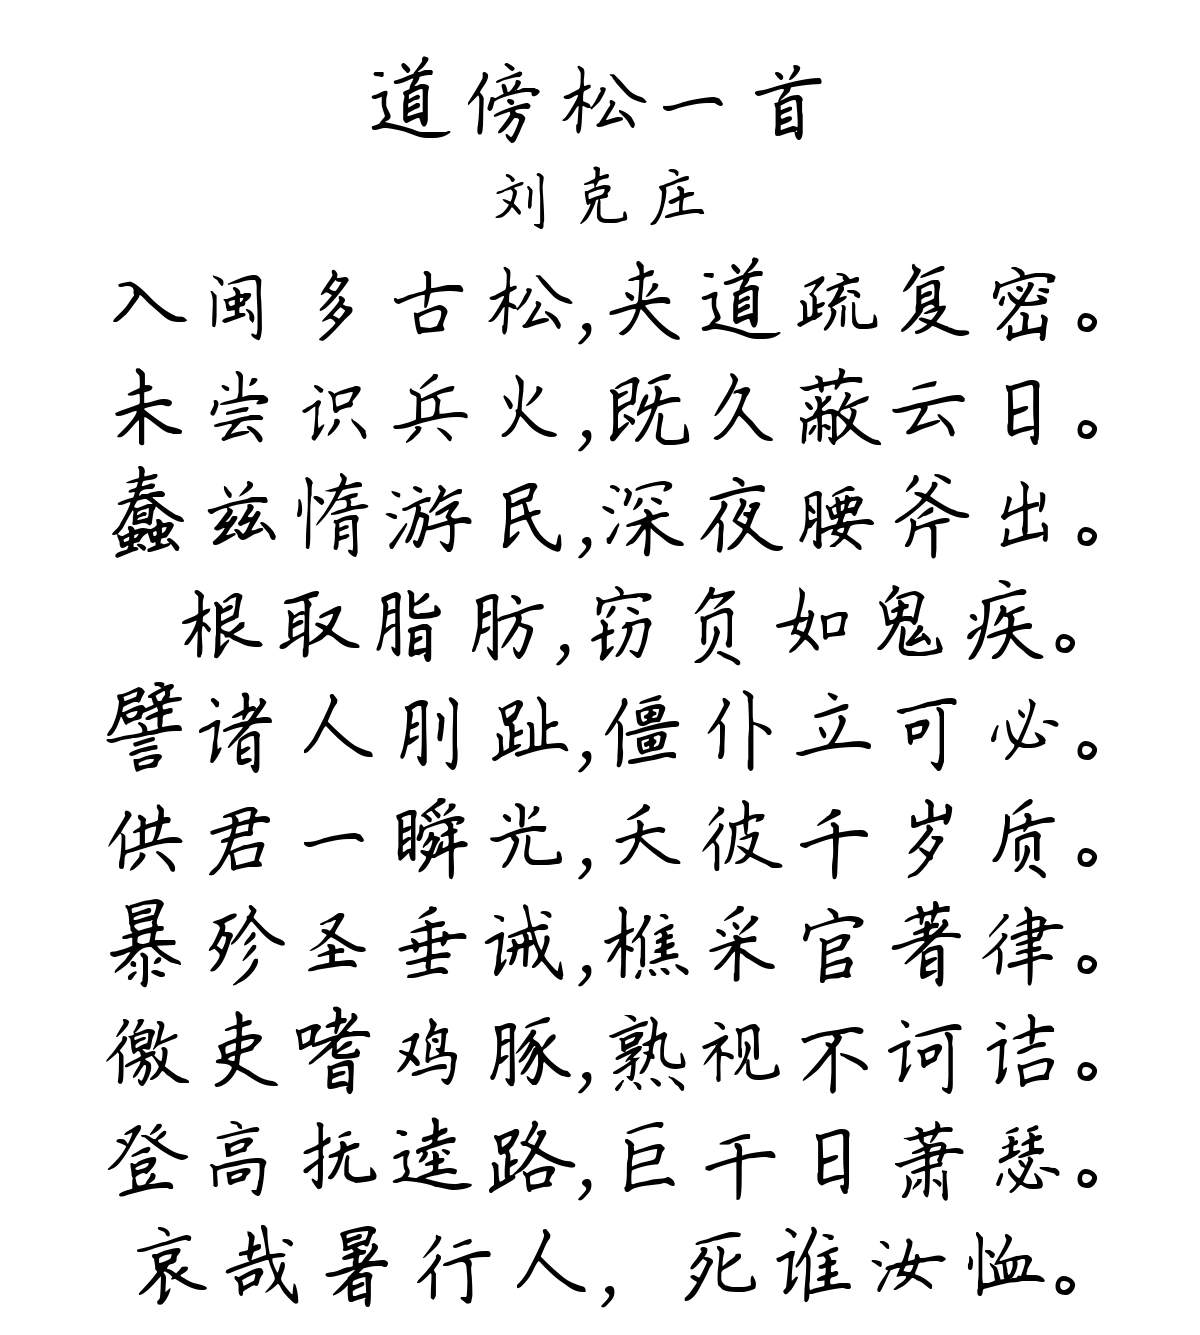 道傍松一首
刘克庄
入闽多古松,夹道疏复密。
未尝识兵火,既久蔽云日。
蠢兹惰游民,深夜腰斧出。
根取脂肪,窃负如鬼疾。
譬诸人刖趾,僵仆立可必。
供君一瞬光,夭彼千岁质。
暴殄圣垂诫,樵采官著律。
徼吏嗜鸡豚,熟视不诃诘。
登高抚逵路,巨干日萧瑟。
哀哉暑行人，死谁汝恤。